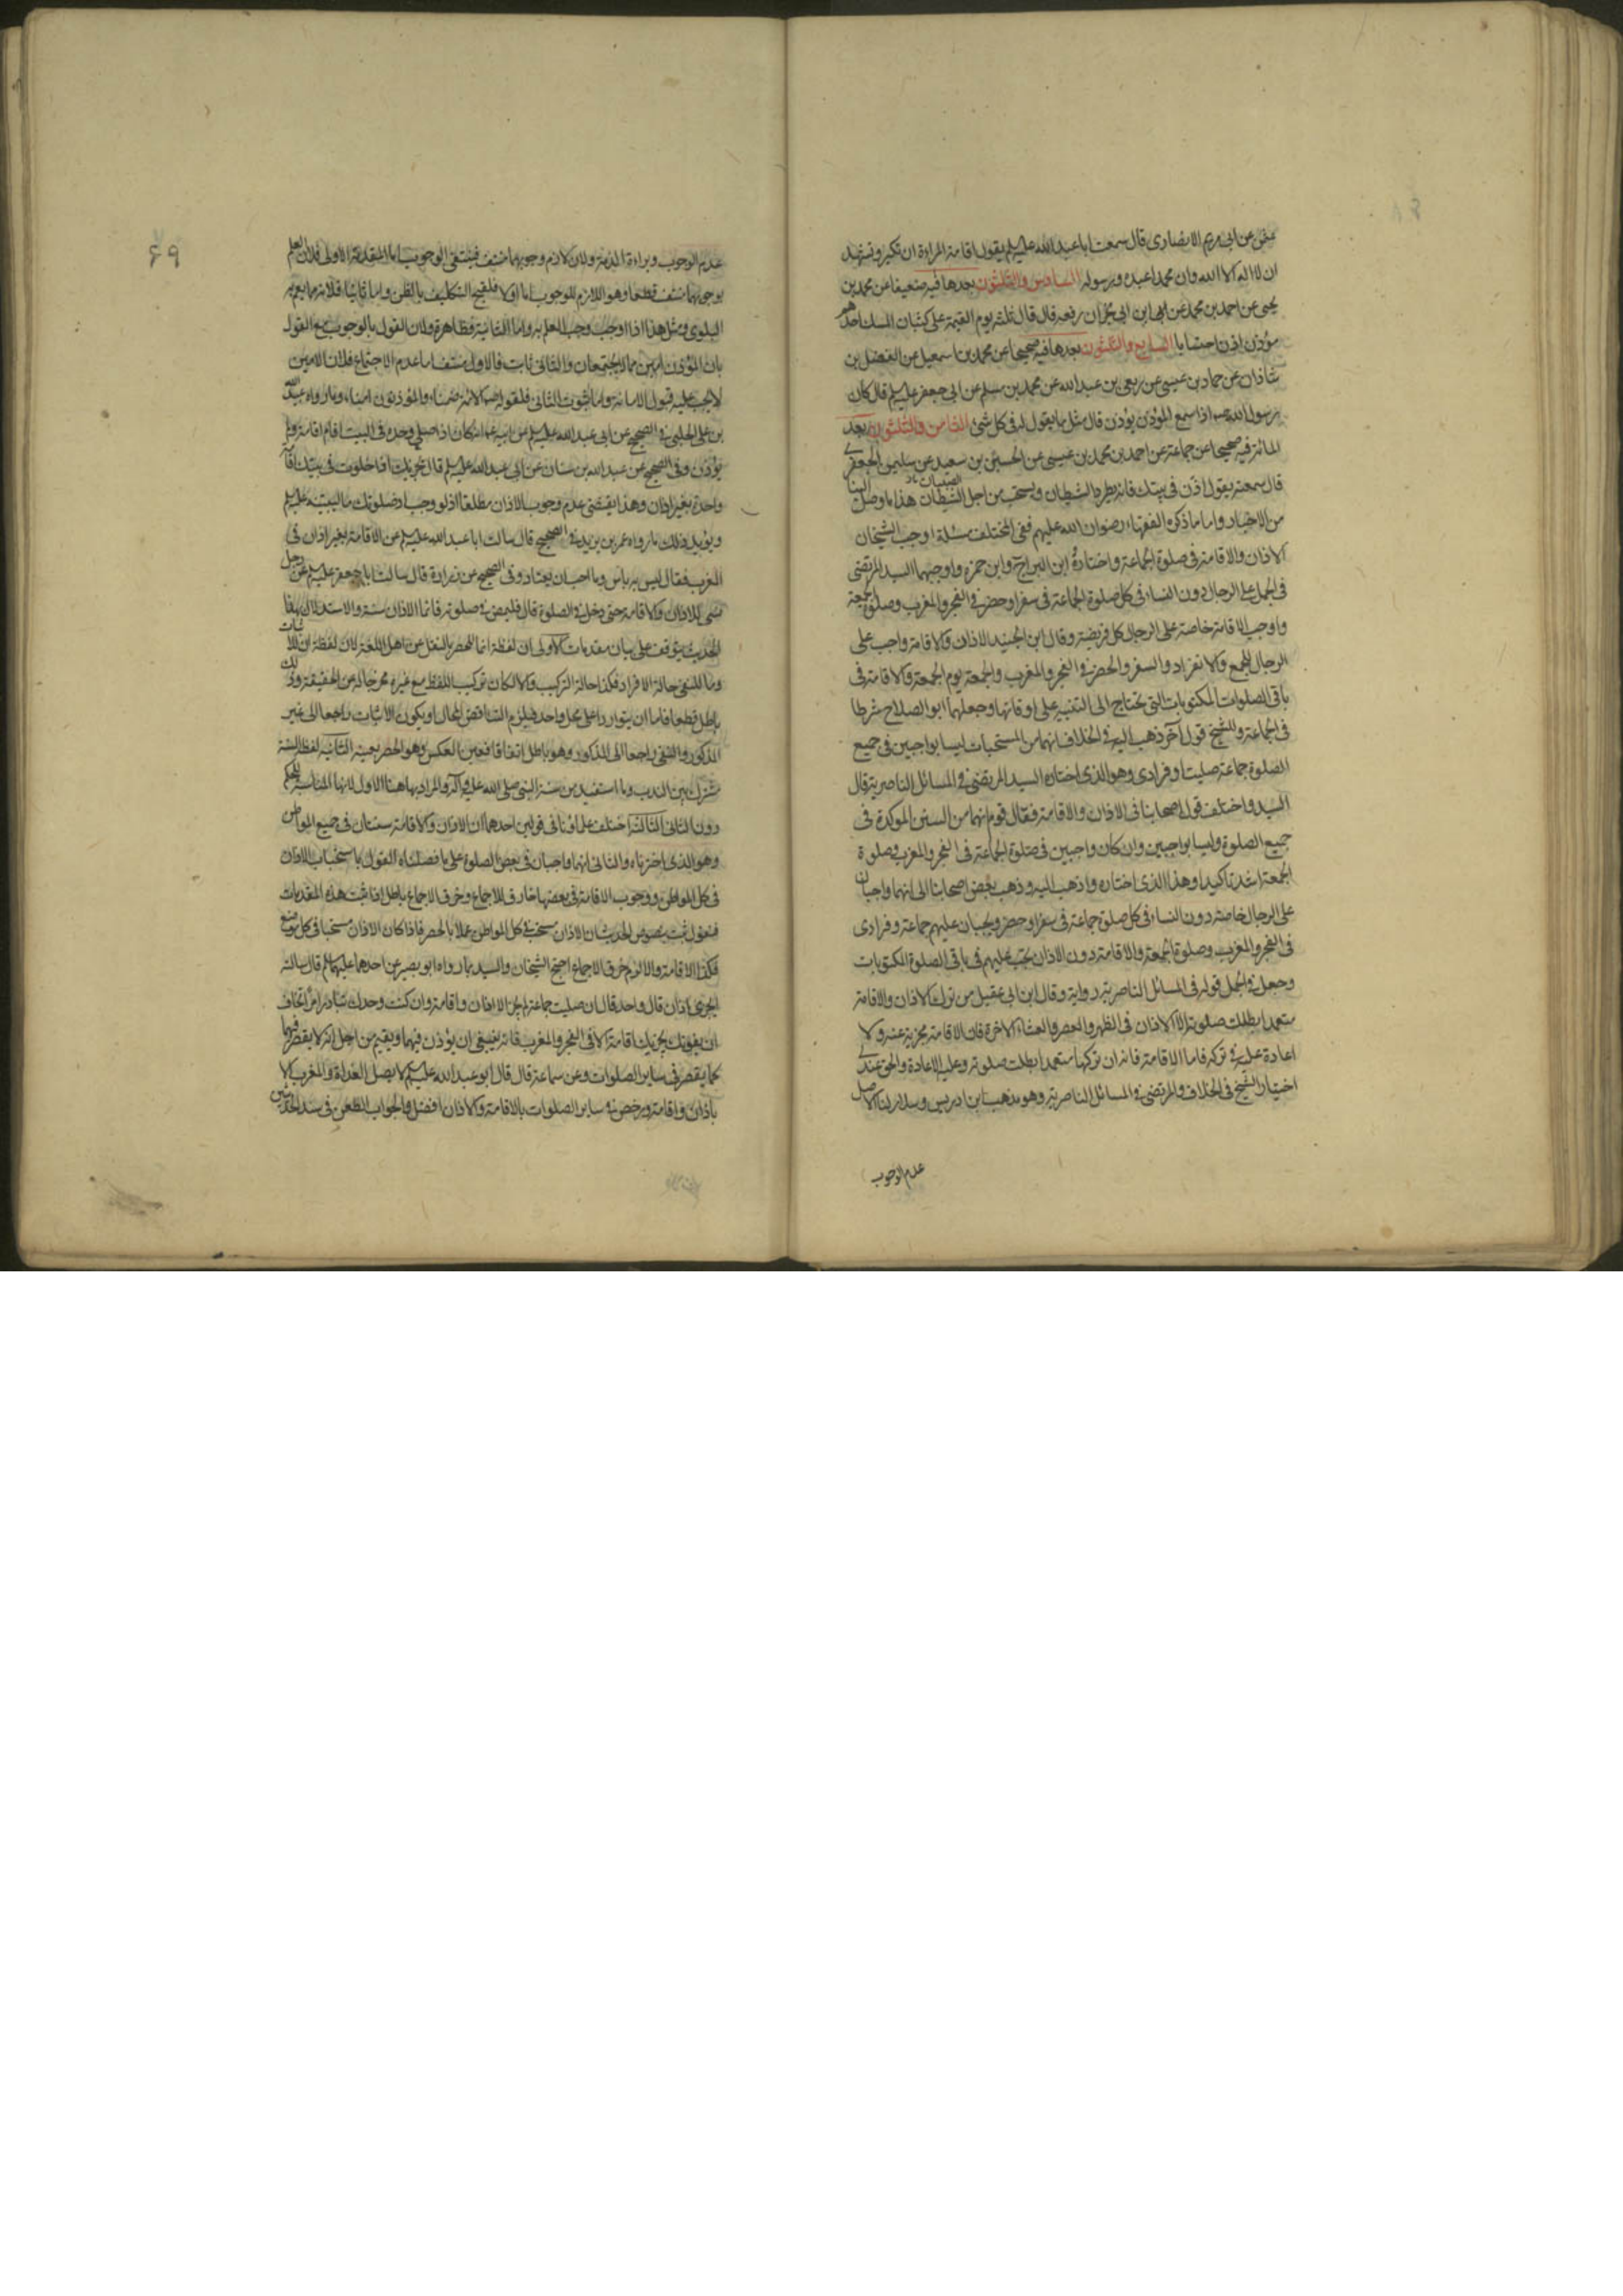 عن ابى مريم الانصارى قال سمعت ابا عبد الله عليلم يقول اقامة المراءة ان تكبر وتشهد
ان لا اله الا الله وان محمدا عبده ورسوله السادس والثلثون بعدها فيه ضعيفا عن محمد بن
يحيى عن احمد بن محمد عن ابى ابن ابى نجران رفعه قال قال ثلثة يوم القيمة على كثبان المسك احدهم
مؤذن اذن احتسابا السابع والثلثون بعدها فيه صحيحا عن محمد بن اسمعيل عن الفضل بن
شاذان عن حماد بن عيسى عن ربعى بن عبد الله عن محمد بن مسلم عن ابى جعفر عليلم قال كان
رسول الله ص اذا سمع المؤذن يؤذن قال مثل ما يقول له فى كل شئ الثامن والثلثون بعد
المائة فيه صحيحا عن جماعة عن احمد بن محمد بن عيسى عن الحسين بن سعيد عن سليمن الجعفرى
قال سمعته يقول اذن فى بيتك فانه يطرد الشيطان ويستحب من اجل الصبيان هذا ما وصل الينا
من الاخبار واما ما ذكره الفقهاء رضوان الله عليهم ففى المختلف مسئلة اوجب الشيخان
الاذان والاقامة فى صلوة الجماعة واختاره ابن البراج وابن حمزه واوجبهما السيد المرتضى
فى الجمل على الرجال دون النساء فى كل صلوة الجماعة فى سفر او حضر وفى الفجر والمغرب وصلوة الجمعة
واوجب الاقامة خاصة على الرجال كل فريضة وقال ابن الجنيد الاذان والاقامة واجب على
الرجال للجمع والانفراد والسفر والحضر فى الفجر والمغرب والجمعة يوم الجمعة والاقامة فى
باقى الصلوات المكتوبات التى تحتاج الى التنبيه على اوقاتها وجعلهما ابو الصلاح شرطا
فى الجماعة وللشيخ قول آخر ذهب اليه فى الخلاف انهما من المستحبات ليسا بواجبين فى جميع
الصلوة جماعة صليت او فرادى وهو الذى اختاره السيد المرتضى فى المسائل الناصرية قال
السيد واختلف قول اصحابنا فى الاذان والاقامة فقال قوم انهما من السنن الموكدة فى
جميع الصلوة وليسا بواجبين وان كان واجبين فى صلوة الجماعة فى الفجر والمغرب وصلوة
الجمعة اشد تاكيدا وهذا الذى اختاره واذهب اليه وذهب بعض اصحابنا الى انهما واجبان
على الرجال خاصة دون النساء فى كل صلوة جماعة فى سفر او حضر ويجبان عليهم جماعة وفرادى
فى الفجر والمغرب وصلوة الجمعة والاقامة دون الاذان يجب عليهم فى باقى الصلوة المكتوبات
وجعل فى الجمل قوله فى المسائل الناصرية رواية وقال ابن ابى عقيل من ترك الاذان والاقامة
متعمدا بطلت صلوته الا الاذان فى الظهر والعصر والعشاء الآخرة فان الاقامة مجزية عنه ولا
اعادة عليه فى تركه فاما الاقامة فانه ان تركها متعمدا بطلت صلوته وعليه الاعادة والحق عندى
اختيار الشيخ فى الخلاف والمرتضى فى المسائل الناصرية وهو مذهب ابن ادريس وسلار لنا الاصل
عدم الوجوب
٤٩
عدم الوجوب وبراءة الذمة ولان لازم وجوبهما منتف فينتفى الوجوب اما المقدمة الاولى فلان العلم
بوجوبهما منتف قطعا وهو اللازم للوجوب اما اولا فلقبح التكليف بالظن واما ثانيا فلانه مما يعم به
البلوى ومثل هذا اذا وجب وجب العلم به واما الثانية فظاهرة ولان القول بالوجوب مع القول
بان المؤذن امين مما لا يجتمعان والثانى ثابت فالاول منتف اما عدم الاجتماع فلان الامين
لا يجب عليه قبول الامانة واما ثبوت الثانى فلقوله ص الائمة ضمناء والمؤذنون امناء وما رواه عبيد الله
بن على الحلبى فى الصحيح عن ابى عبد الله عليلم عن ابيه انه كان اذا صلى وحده فى البيت اقام اقامة ولم
يؤذن وفى الصحيح عن عبد الله بن سنان عن ابى عبد الله عليلم قال يجزيك اذا خلوت فى بيتك اقامة
واحدة بغير اذان وهذا يقتضى عدم وجوب الاذان مطلقا اذ لو وجب لبينه عليلم
ويؤيد ذلك ما رواه عمر بن يزيد فى الصحيح قال سالت ابا عبد الله عليلم عن الاقامة بغير اذان فى
المغرب فقال ليس به باس وما احب ان يعتاد وفى الصحيح عن زرارة قال سالت ابا جعفر عليلم عن رجل
نسى الاذان والاقامة حتى دخل فى الصلوة قال فليمض فى صلوته فانما الاذان سنة والاستدلال بهذا
الحديث يتوقف على بيان مقدمات الاولى ان لفظة انما للحصر بالنقل عن اهل اللغة لان لفظة ان للاثبات
وما للنفى حالة الافراد فكذا حالة التركيب والا لكان تركيب اللفظ مع غيره مخرجا له عن الحقيقة وذلك
باطل قطعا فاما ان يتواردا على محل واحد فيلزم التناقض المحال او يكون الاثبات راجعا الى غير
المذكور والنفى راجعا الى المذكور وهو باطل اتفاقا فتعين العكس وهو الحصر بعينه الثانيه لفظ السنة
مشترك بين الندب وما استفيد من سنة النبى صلى الله عليه وآله والمراد بها هنا الاول لانها المناسبة للحكم
دون الثانى الثالثة اختلف علماؤنا فى قولين احدهما ان الاذان والاقامة سنتان فى جميع المواطن
وهو الذى اخترناه والثانى انهما واجبان فى بعض الصلوة على ما فصلناه القول باستحباب الاذان
فى كل المواطن ووجوب الاقامة فى بعضها خارق للاجماع وخرق الاجماع باطل اذا ثبت هذه المقدمات
فنقول ثبت بنصوص الحديث ان الاذان مستحب فى كل المواطن عملا بالحصر فاذا كان الاذان مستحبا فى كل موضع
فكذا الاقامة والا لزم خرق الاجماع احتج الشيخان والسيد بما رواه ابو بصير عن احدهما عليهما لم قال سالته
ايجزى اذان واحد قال ان صليت جماعة لم يجز الا اذان واقامة وان كنت وحدك تبادر امرا تخاف
ان يفوتك يجزيك اقامة الا فى الفجر والمغرب فانه ينبغى ان يؤذن فيهما ويقيم من اجل انه لا يقصر فيهما
كما يقصر فى ساير الصلوات وعن سماعة قال قال ابو عبد الله عليلم لا يصل الغداة والمغرب الا
باذان واقامة ورخص فى ساير الصلوات بالاقامة والاذان افضل والجواب الطعن فى سند الحديثين